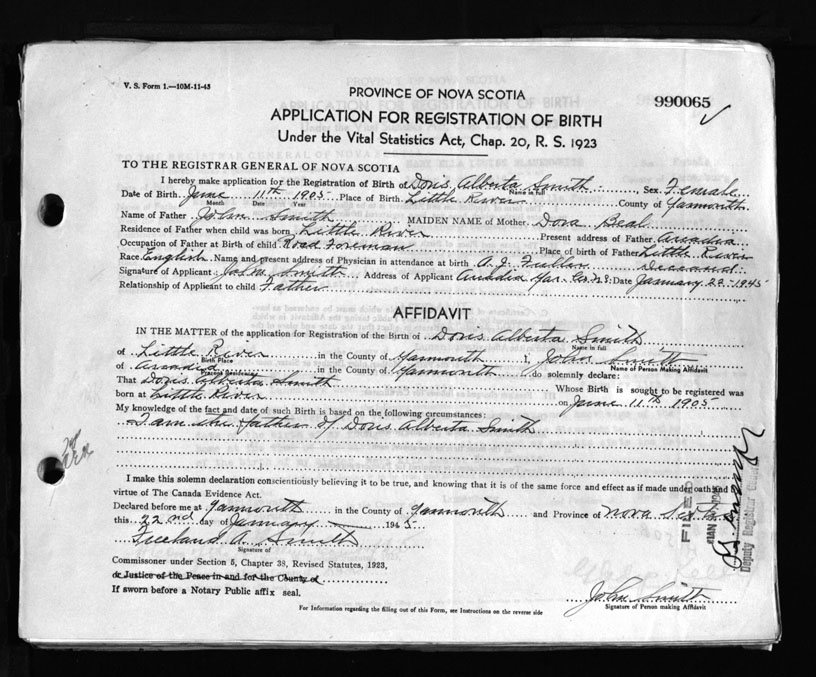 V. S. Form 1.—10M-11-43
PROVINCE OF NOVA SCOTIA
990065
APPLICATION FOR REGISTRATION OF BIRTH
Under the Vital Statistics Act, Chap. 20, R. S. 1923
TO THE REGISTRAR GENERAL OF NOVA SCOTIA
I hereby make application for the Registration of Birth of Doris Alberta Smith, Sex Female
Name in full
Date of Birth June 11th 1905 Place of Birth Little River County of Yarmouth
Month Date Year
Name of Father John Smith MAIDEN NAME of Mother Dora Beal
Residence of Father when child was born Little River Present address of Father Arcadia
Occupation of Father at Birth of child Road Foreman Place of birth of Father Little River
Race English Name and present address of Physician in attendance at birth A. J. Fuller Deceased
Signature of Applicant: Smith Address of Applicant Arcadia Yar. Co. N.S. Date January 22-1945
Relationship of Applicant to child Father
AFFIDAVIT
IN THE MATTER of the application for Registration of the Birth of Doris Alberta Smith
Name in full
of Little River in the County of Yarmouth I, John Smith
Birth Place Name of Person Making Affidavit
of Arcadia in the County of Yarmouth do solemnly declare:
Present Residence
That Doris Alberta Smith Whose Birth is sought to be registered was
born at Little River on June 11th 1905
My knowledge of the fact and date of such Birth is based on the following circumstances:
I am the father of Doris Alberta Smith
I make this solemn declaration conscientiously believing it to be true, and knowing that it is of the same force and effect as if made under oath and by
virtue of The Canada Evidence Act.
Declared before me at Yarmouth in the County of Yarmouth and Province of Nova Scotia
this 22nd day of January 1945
Freeland A. Smith
Signature of
Commissioner under Section 5, Chapter 38, Revised Statutes, 1923,
or Justice of the Peace in and for the County of
If sworn before a Notary Public affix seal.
John Smith
Signature of Person making Affidavit
For Information regarding the filling out of this Form, see Instructions on the reverse side
FILED
JAN
Deputy Registrar